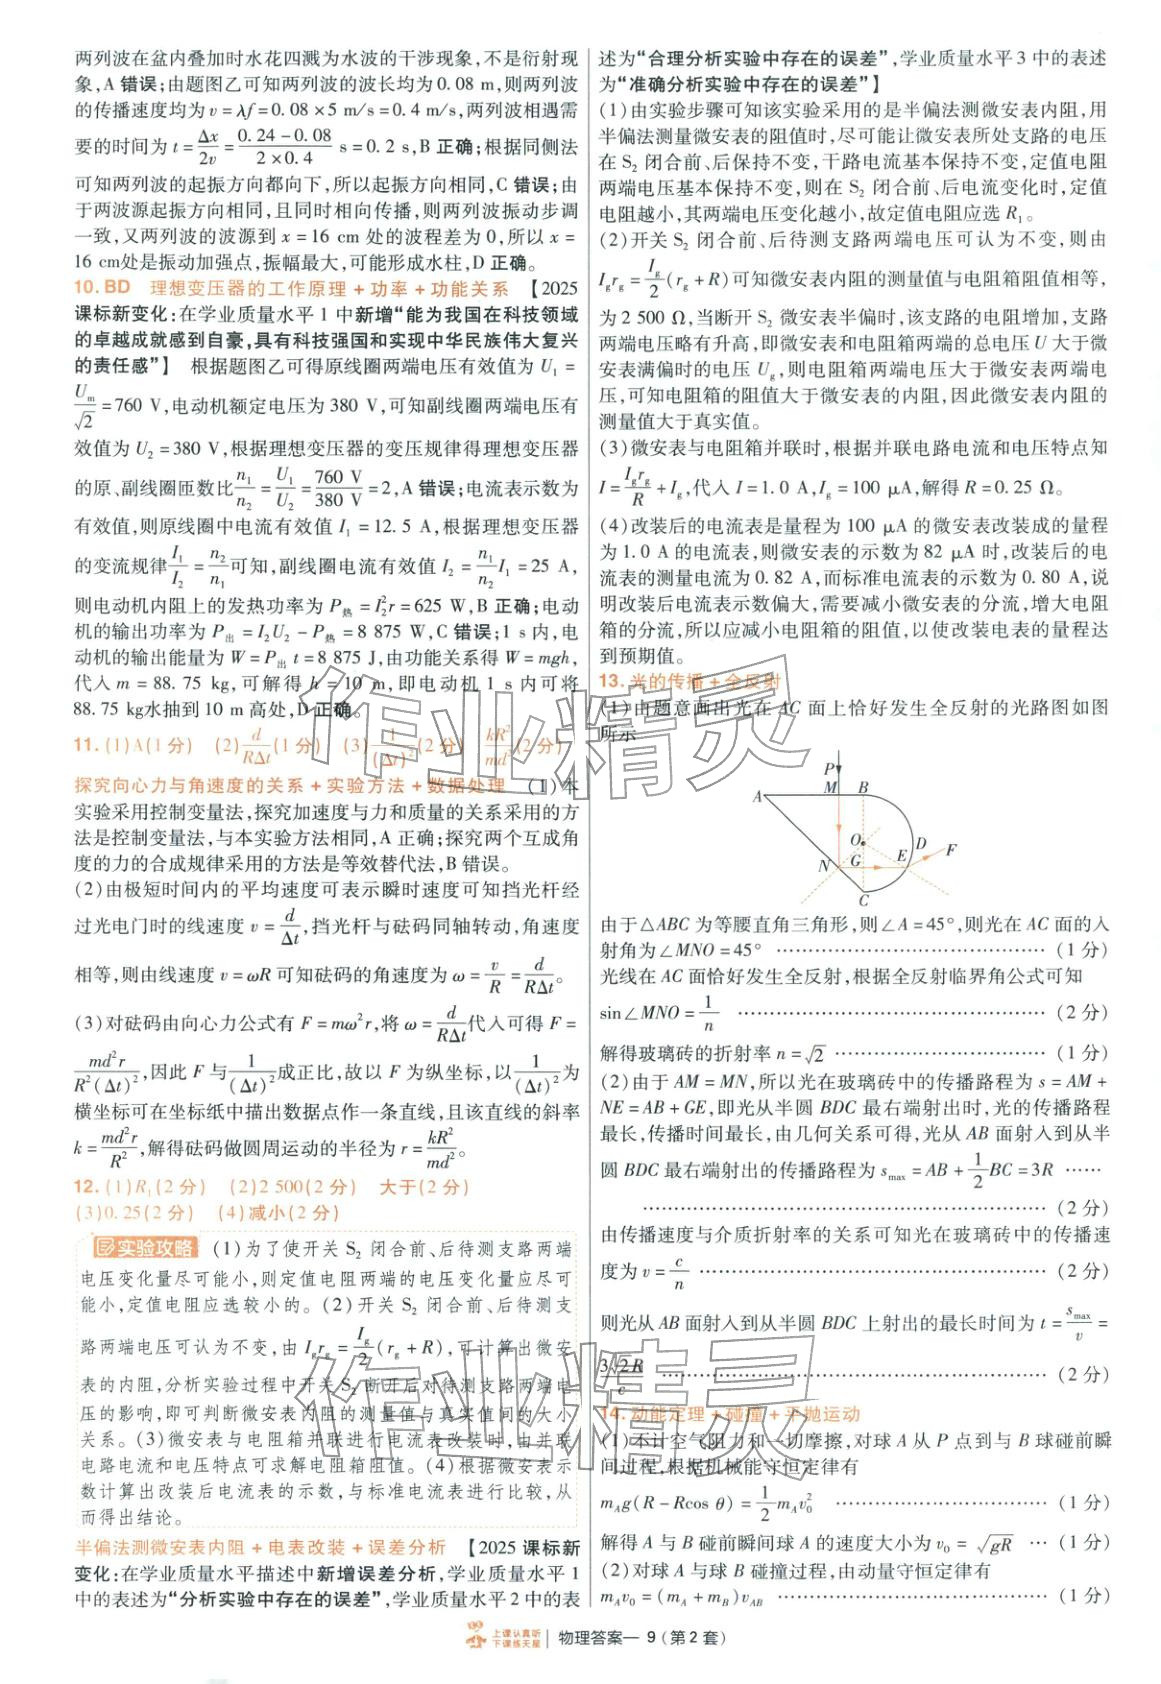 两列波在盆内叠加时水花四溅为水波的干涉现象,不是衍射现
象,A 错误;由题图乙可知两列波的波长均为 0.08 m,则两列波
的传播速度均为 v=λf=0.08×5 m/s=0.4 m/s,两列波相遇需
要的时间为 t=Δx/2v=(0.24-0.08)/(2×0.4) s=0.2 s,B 正确;根据同侧法
可知两列波的起振方向都向下,所以起振方向相同,C 错误;由
于两波源起振方向相同,且同时相向传播,则两列波振动步调
一致,又两列波的波源到 x=16 cm 处的波程差为 0,所以 x=
16 cm处是振动加强点,振幅最大,可能形成水柱,D 正确。
10. BD 理想变压器的工作原理+功率+功能关系 【2025
课标新变化:在学业质量水平 1 中新增“能为我国在科技领域
的卓越成就感到自豪,具有科技强国和实现中华民族伟大复兴
的责任感”】 根据题图乙可得原线圈两端电压有效值为 U₁=
Uₘ/√2=760 V,电动机额定电压为 380 V,可知副线圈两端电压有
效值为 U₂=380 V,根据理想变压器的变压规律得理想变压器
的原、副线圈匝数比n₁/n₂=U₁/U₂=760 V/380 V=2,A 错误;电流表示数为
有效值,则原线圈中电流有效值 I₁=12.5 A,根据理想变压器
的变流规律I₁/I₂=n₂/n₁可知,副线圈电流有效值 I₂=(n₁/n₂)I₁=25 A,
则电动机内阻上的发热功率为 P热=I₂²r=625 W,B 正确;电动
机的输出功率为 P出=I₂U₂-P热=8 875 W,C 错误;1 s 内,电
动机的输出能量为 W=P出 t=8 875 J,由功能关系得 W=mgh,
代入 m=88.75 kg,可解得 h=10 m,即电动机 1 s 内可将
88.75 kg水抽到 10 m 高处,D 正确。
11. (1)A(1 分) (2)d/RΔt(1 分) (3)1/(Δt)²(2 分) kR²/md²(2 分)
探究向心力与角速度的关系+实验方法+数据处理 (1)本
实验采用控制变量法,探究加速度与力和质量的关系采用的方
法是控制变量法,与本实验方法相同,A 正确;探究两个互成角
度的力的合成规律采用的方法是等效替代法,B 错误。
(2)由极短时间内的平均速度可表示瞬时速度可知挡光杆经
过光电门时的线速度 v=d/Δt,挡光杆与砝码同轴转动,角速度
相等,则由线速度 v=ωR 可知砝码的角速度为 ω=v/R=d/RΔt。
(3)对砝码由向心力公式有 F=mω²r,将 ω=d/RΔt代入可得 F=
md²r/R²(Δt)²,因此 F 与1/(Δt)²成正比,故以 F 为纵坐标,以1/(Δt)²为
横坐标可在坐标纸中描出数据点作一条直线,且该直线的斜率
k=md²r/R²,解得砝码做圆周运动的半径为 r=kR²/md²。
12. (1)R₁(2 分) (2)2 500(2 分) 大于(2 分)
(3)0.25(2 分) (4)减小(2 分)
实验攻略 (1)为了使开关 S₂ 闭合前、后待测支路两端
电压变化量尽可能小,则定值电阻两端的电压变化量应尽可
能小,定值电阻应选较小的。(2)开关 S₂ 闭合前、后待测支
路两端电压可认为不变,由 Igrg=Ig/2(rg+R),可计算出微安
表的内阻,分析实验过程中开关 S₂ 断开后对待测支路两端电
压的影响,即可判断微安表内阻的测量值与真实值间的大小
关系。(3)微安表与电阻箱并联进行电流表改装时,由并联
电路电流和电压特点可求解电阻箱阻值。(4)根据微安表示
数计算出改装后电流表的示数,与标准电流表进行比较,从
而得出结论。
半偏法测微安表内阻+电表改装+误差分析 【2025 课标新
变化:在学业质量水平描述中新增误差分析,学业质量水平 1
中的表述为“分析实验中存在的误差”,学业质量水平 2 中的表
述为“合理分析实验中存在的误差”,学业质量水平 3 中的表述
为“准确分析实验中存在的误差”】
(1)由实验步骤可知该实验采用的是半偏法测微安表内阻,用
半偏法测量微安表的阻值时,尽可能让微安表所处支路的电压
在 S₂ 闭合前、后保持不变,干路电流基本保持不变,定值电阻
两端电压基本保持不变,则在 S₂ 闭合前、后电流变化时,定值
电阻越小,其两端电压变化越小,故定值电阻应选 R₁。
(2)开关 S₂ 闭合前、后待测支路两端电压可认为不变,则由
Igrg=Ig/2(rg+R)可知微安表内阻的测量值与电阻箱阻值相等,
为 2 500 Ω,当断开 S₂ 微安表半偏时,该支路的电阻增加,支路
两端电压略有升高,即微安表和电阻箱两端的总电压 U 大于微
安表满偏时的电压 Ug,则电阻箱两端电压大于微安表两端电
压,可知电阻箱的阻值大于微安表的内阻,因此微安表内阻的
测量值大于真实值。
(3)微安表与电阻箱并联时,根据并联电路电流和电压特点知
I=Igrg/R+Ig,代入 I=1.0 A,Ig=100 μA,解得 R=0.25 Ω。
(4)改装后的电流表是量程为 100 μA 的微安表改装成的量程
为 1.0 A 的电流表,则微安表的示数为 82 μA 时,改装后的电
流表的测量电流为 0.82 A,而标准电流表的示数为 0.80 A,说
明改装后电流表示数偏大,需要减小微安表的分流,增大电阻
箱的分流,所以应减小电阻箱的阻值,以使改装电表的量程达
到预期值。
13. 光的传播+全反射
(1)由题意画出光在 AC 面上恰好发生全反射的光路图如图
所示
P
A M B
O D
N G E F
C
由于△ABC 为等腰直角三角形,则∠A=45°,则光在 AC 面的入
射角为∠MNO=45° ……………………………… (1 分)
光线在 AC 面恰好发生全反射,根据全反射临界角公式可知
sin∠MNO=1/n ……………………………… (2 分)
解得玻璃砖的折射率 n=√2 ……………………… (1 分)
(2)由于 AM=MN,所以光在玻璃砖中的传播路程为 s=AM+
NE=AB+GE,即光从半圆 BDC 最右端射出时,光的传播路程
最长,传播时间最长,由几何关系可得,光从 AB 面射入到从半
圆 BDC 最右端射出的传播路程为 smax=AB+1/2BC=3R ……
……………………………………………… (2 分)
由传播速度与介质折射率的关系可知光在玻璃砖中的传播速
度为 v=c/n ……………………………………… (2 分)
则光从 AB 面射入到从半圆 BDC 上射出的最长时间为 t=smax/v=
3√2R/c ……………………………………………… (2 分)
14. 动能定理+碰撞+平抛运动
(1)不计空气阻力和一切摩擦,对球 A 从 P 点到与 B 球碰前瞬
间过程,根据机械能守恒定律有
mAg(R-Rcos θ)=1/2mAv₀² ……………………… (1 分)
解得 A 与 B 碰前瞬间球 A 的速度大小为 v₀=√gR … (1 分)
(2)对球 A 与球 B 碰撞过程,由动量守恒定律有
mAv₀=(mA+mB)vAB ……………………………… (1 分)
上课认真听
下课练天星
物理答案—9(第 2 套)
作业精灵
作业精灵